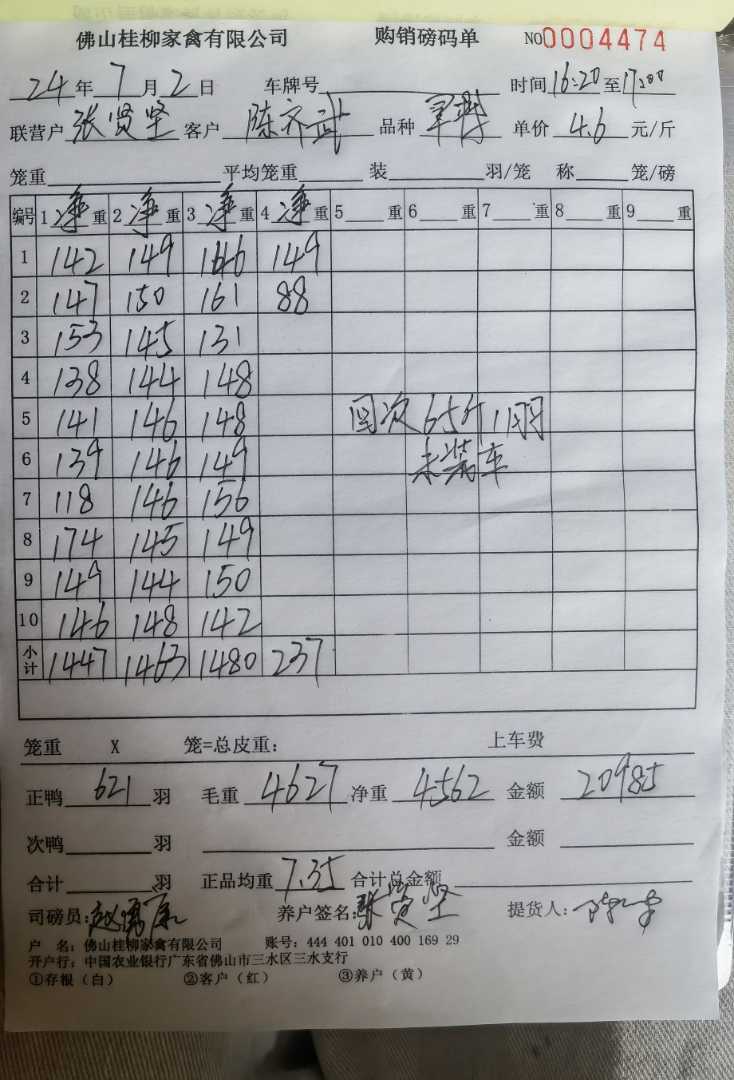 佛山桂柳家禽有限公司 购销磅码单 NO0004474
24年7月2日 车牌号 时间16:20至17:00
联营户 张贤坚 客户 陈齐武 品种 单价 4.6 元/斤
笼重 平均笼重 装 羽/笼 称 笼/磅
编号 1净重 2净重 3净重 4净重 5重 6重 7重 8重 9重
1 142 149 146 149
2 147 150 161 88
3 153 145 131
4 138 144 148
5 141 146 148 次65斤
6 139 146 149 未装车
7 118 146 156
8 174 145 149
9 149 144 150
10 146 148 142
小计 1447 1463 1480 237
笼重 X 笼=总皮重: 上车费
正鸭 621 羽 毛重 4627 净重 4562 金额 20985
次鸭 羽 金额
合计 羽 正品均重 7.35 合计总金额
司磅员: 养户签名: 张贤坚 提货人:
户 名: 佛山桂柳家禽有限公司 账号: 444 401 010 400 169 29
开户行: 中国农业银行广东省佛山市三水区三水支行
①存根(白) ②客户(红) ③养户(黄)